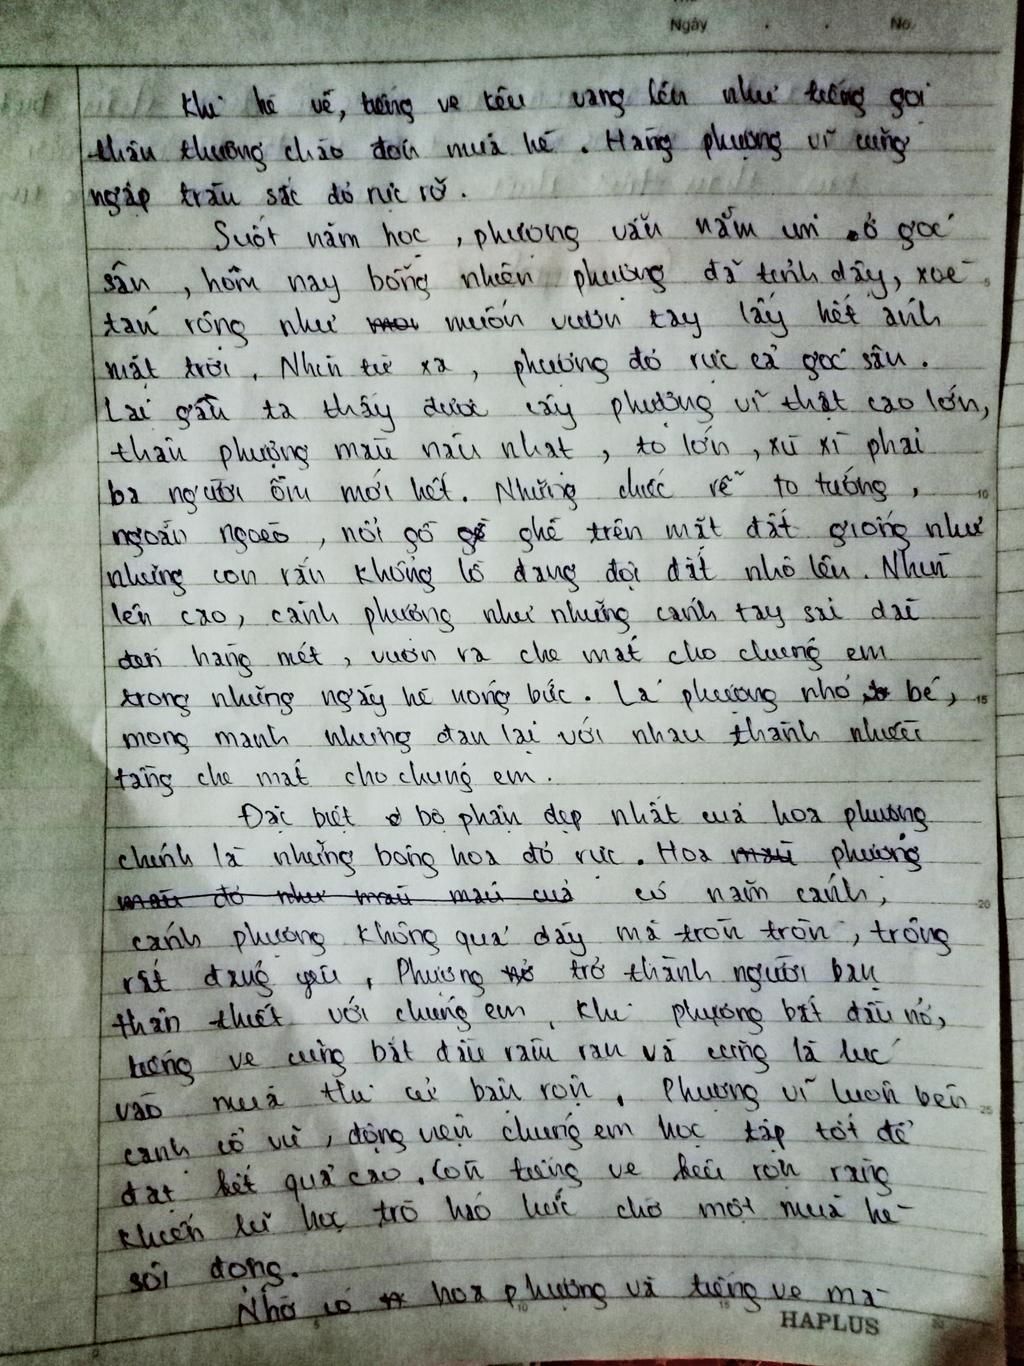 Ngày . . No.
Khi hè về, tiếng ve kêu vang lên như tiếng gọi
thân thương chào đón mùa hè. Hàng phượng vĩ cũng
ngập tràn sắc đỏ rực rỡ.
Suốt năm học, phượng vẫn nằm im ở góc
sân, hôm nay bỗng nhiên phượng đã tỉnh dậy, xoè
tán rộng như muốn vươn tay lấy hết ánh
mặt trời. Nhìn từ xa, phượng đỏ rực cả góc sân.
Lại gần ta thấy được cây phượng vĩ thật cao lớn,
thân phượng màu nâu nhạt, to lớn, xù xì phải
ba người ôm mới hết. Những chiếc rễ to tướng,
ngoằn ngoèo, nổi gồ ghề trên mặt đất giống như
những con rắn khổng lồ đang đội đất nhô lên. Nhìn
lên cao, cành phượng như những cánh tay sải dài
đến hàng mét, vươn ra che mát cho chúng em
trong những ngày hè nóng bức. Lá phượng nhỏ bé,
mong manh nhưng đan lại với nhau thành nhiều
tầng che mát cho chúng em.
Đặc biệt bộ phận đẹp nhất của hoa phượng
chính là những bông hoa đỏ rực. Hoa phượng
có năm cánh,
cánh phượng không quá dày mà tròn tròn, trông
rất đáng yêu. Phượng trở thành người bạn
thân thiết với chúng em. Khi phượng bắt đầu nở,
tiếng ve cũng bắt đầu râm ran và cũng là lúc
vào mùa thi cử bận rộn. Phượng vĩ luôn bên
cạnh cổ vũ, động viên chúng em học tập tốt để
đạt kết quả cao. Còn tiếng ve kêu rộn ràng
khiến lũ học trò háo hức chờ một mùa hè
sôi động.
Nhờ có hoa phượng và tiếng ve mà
HAPLUS